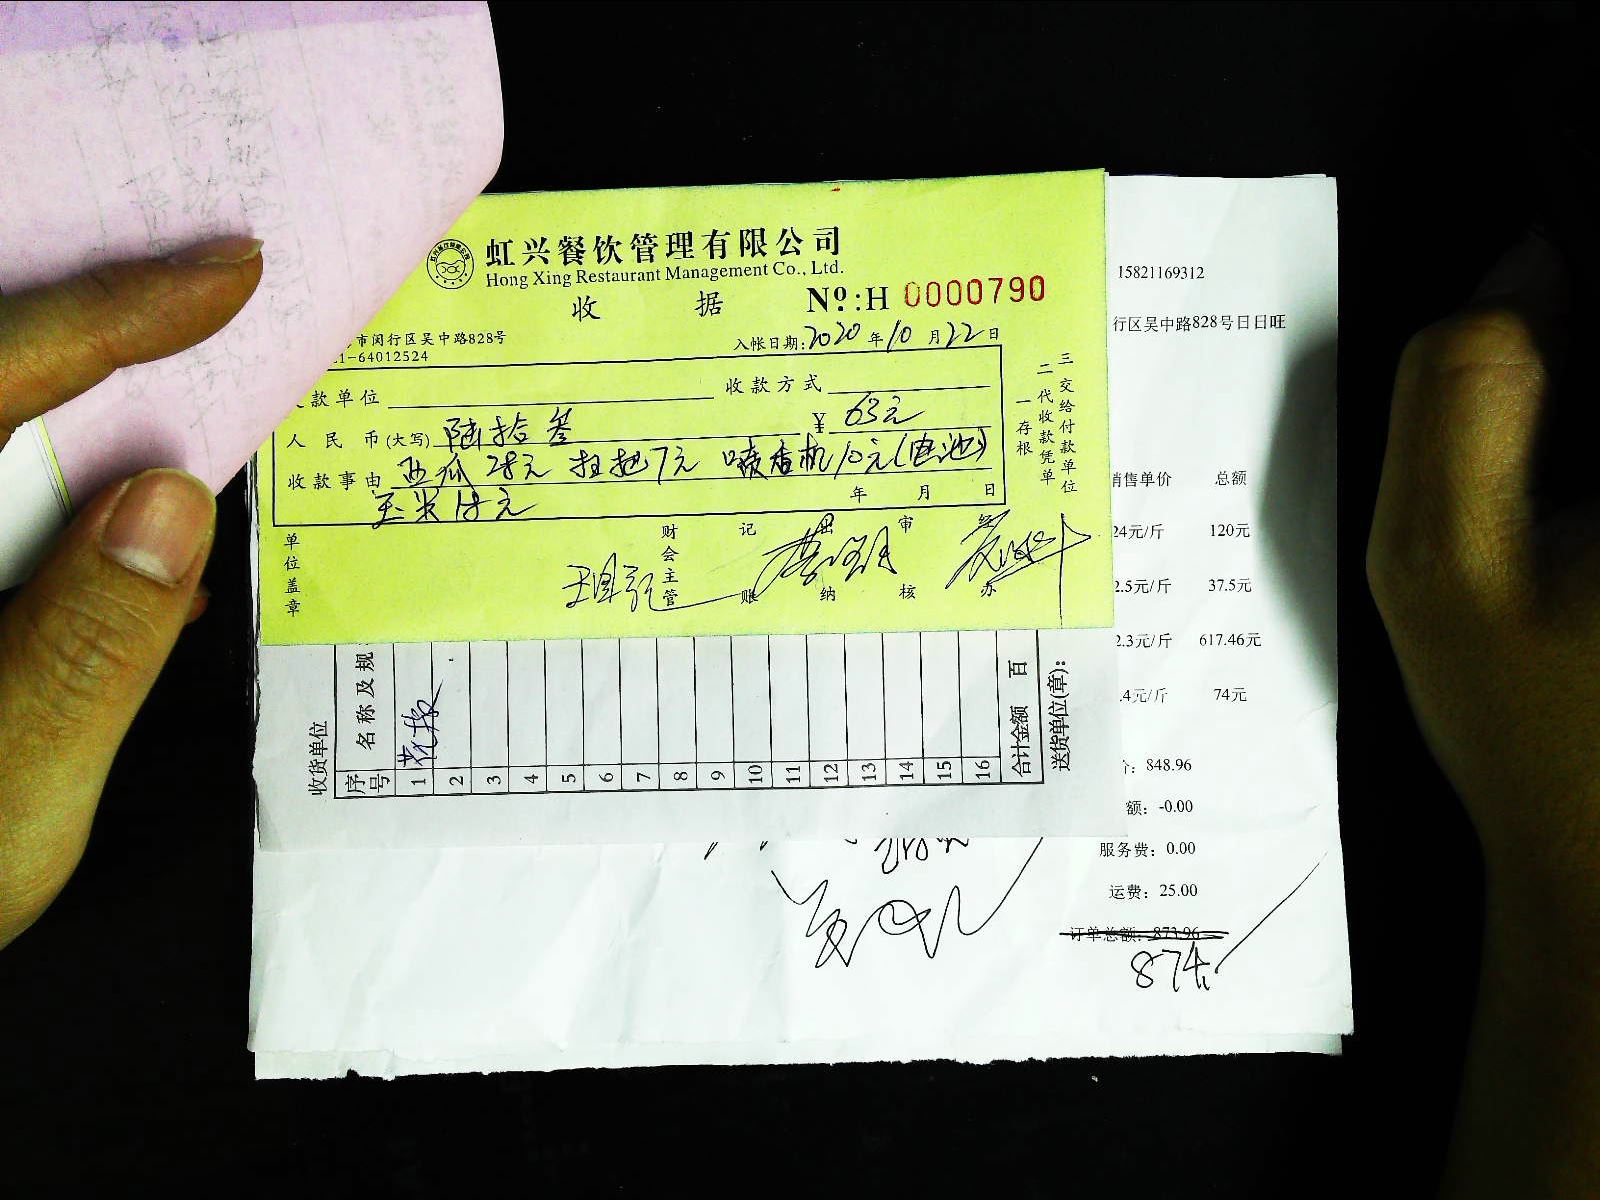 虹兴餐饮管理有限公司
Hong Xing Restaurant Management Co., Ltd.
收 据
№:H 0000790
市闵行区吴中路828号
1-64012524
入帐日期:2020年10月22日
款单位
收款方式
人民币(大写) 陆拾叁
¥ 63元
收款事由 西瓜 28元 扫把7元 喷香机10元(电池)
玉米18元
年 月 日
一存根
二代收款凭单
三交给付款单位
单位盖章
财会主管
记账
出纳
审核
经办
收货单位
序号
名称及规
1
2
3
4
5
6
7
8
9
10
11
12
13
14
15
16
合计金额 百
送货单位(章):
15821169312
行区吴中路828号日日旺
销售单价 总额
24元/斤 120元
2.5元/斤 37.5元
2.3元/斤 617.46元
.4元/斤 74元
848.96
额: -0.00
服务费: 0.00
运费: 25.00
订单总额: 873.96
874